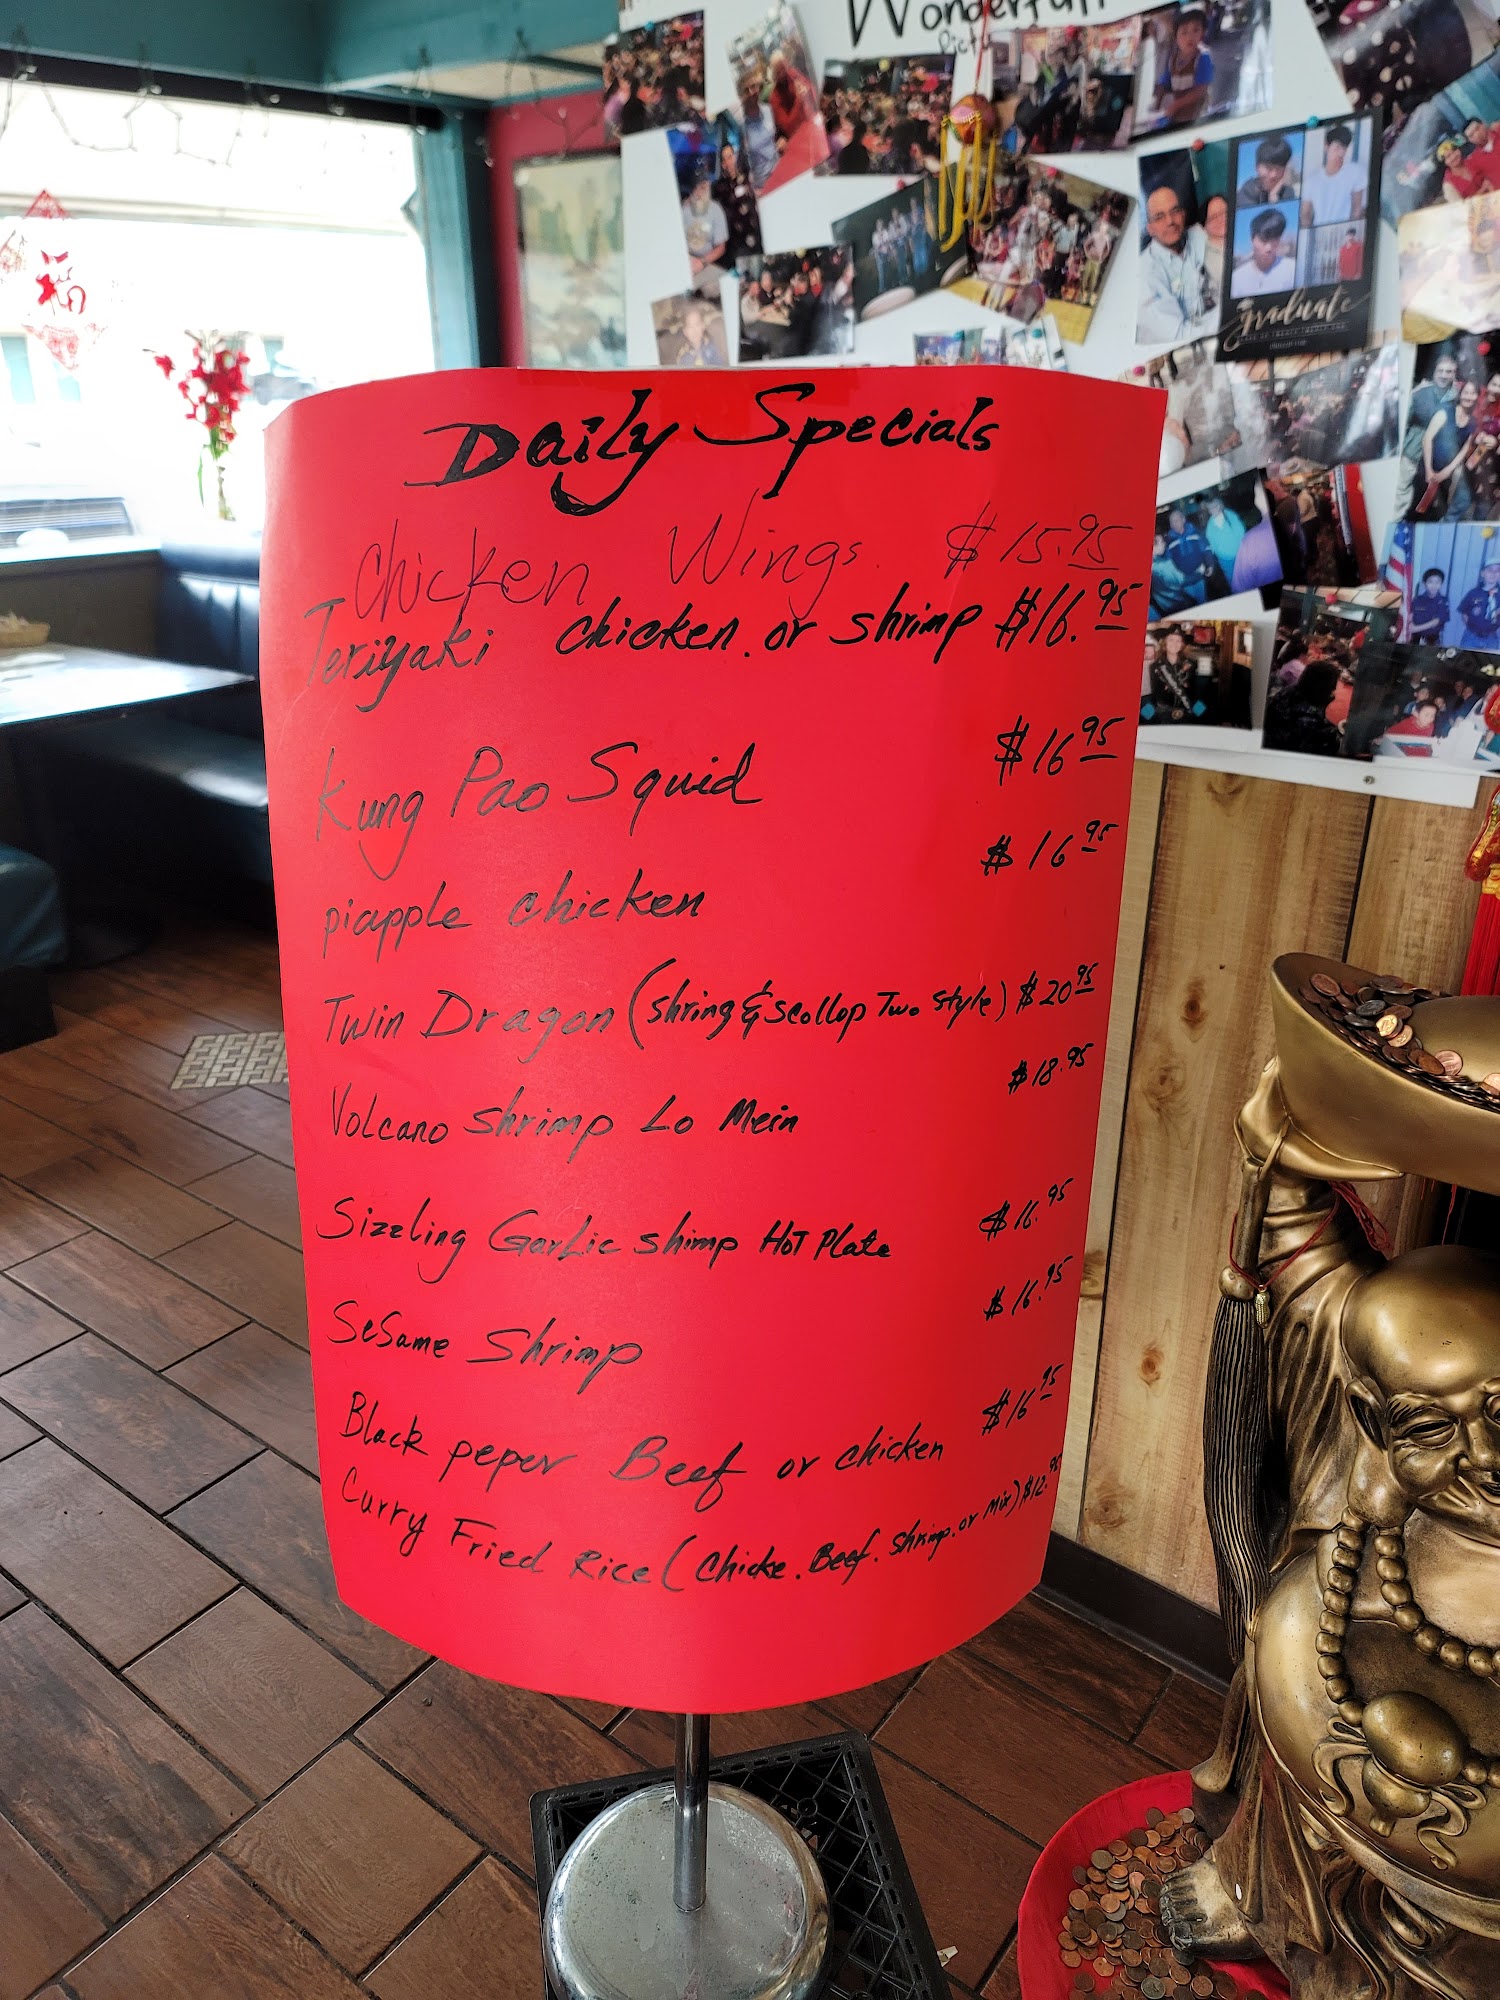 Wonderfull
Daily Specials
Chicken Wings. $15.95
Teriyaki chicken. or shrimp $16.95
Kung Pao Squid $16 95
piapple chicken $16 95
Twin Dragon (shring & scollop Two style) $20 95
Volcano shrimp Lo Mein $18.95
Sizzling Garlic shimp HOT Plate $16.95
SeSame Shrimp $16.95
Black peper Beef or chicken $16 95
Curry Fried Rice (Chicke. Beef. shrimp. or Mix) $12.95
graduate
福